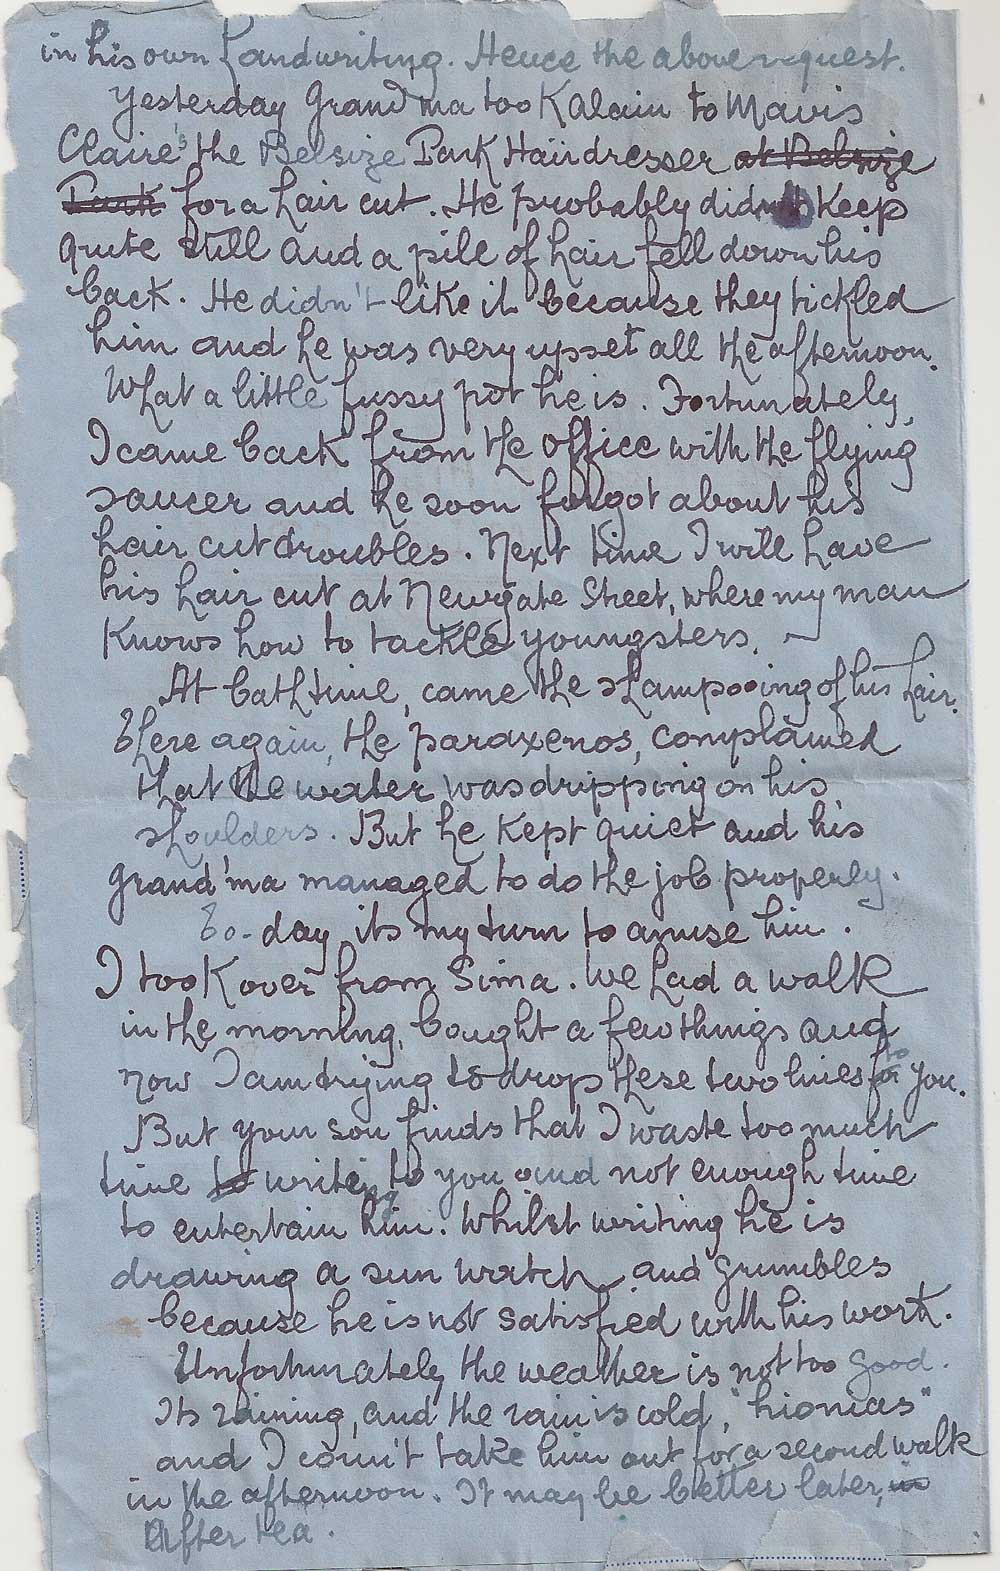 in his own handwriting. Hence the above request.
Yesterday Grand'ma took Alain to Mavis
Claire's the Belsize Park Hairdresser at Belsize
Park for a hair cut. He probably didn't keep
quite still and a pile of hair fell down his
back. He didn't like it because they tickled
him and he was very upset all the afternoon.
What a little fussy pot he is. Fortunately,
I came back from the office with the flying
saucer and he soon forgot about his
hair cut troubles. Next time I will have
his hair cut at Newgate Street, where my man
knows how to tackle youngsters. ~
At bath time, came the shampooing of his hair.
There again, the paraxenos, complained
that the water was dripping on his
shoulders. But he kept quiet and his
grand'ma managed to do the job properly.
To-day its my turn to amuse him.
I took over from Sima. We had a walk
in the morning, bought a few things and
now I am trying to drop these two lines for to you.
But your son finds that I waste too much
time to writing to you and not enough time
to entertain him. Whilst writing he is
drawing a sun watch and grumbles
because he is not satisfied with his work.
Unfortunately the weather is not too good.
Its raining, and the rain is cold, "hionias"
and I can't take him out for a second walk
in the afternoon. It may be better later, in
After tea.